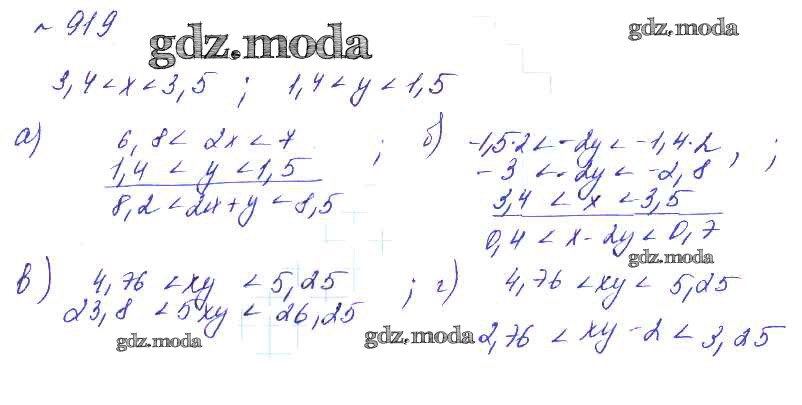 № 919
gdz.moda
gdz.moda
3,4 < x < 3,5 ; 1,4 < y < 1,5
а) 6,8 < 2x < 7
1,4 < y < 1,5
8,2 < 2x + y < 8,5 ;
б) -1,5·2 < -2y < -1,4·2
-3 < -2y < -2,8
3,4 < x < 3,5
0,4 < x - 2y < 0,7 , ;
gdz.moda
в) 4,76 < xy < 5,25
23,8 < 5xy < 26,25 ;
gdz.moda
г) 4,76 < xy < 5,25
2,76 < xy - 2 < 3,25
gdz.moda